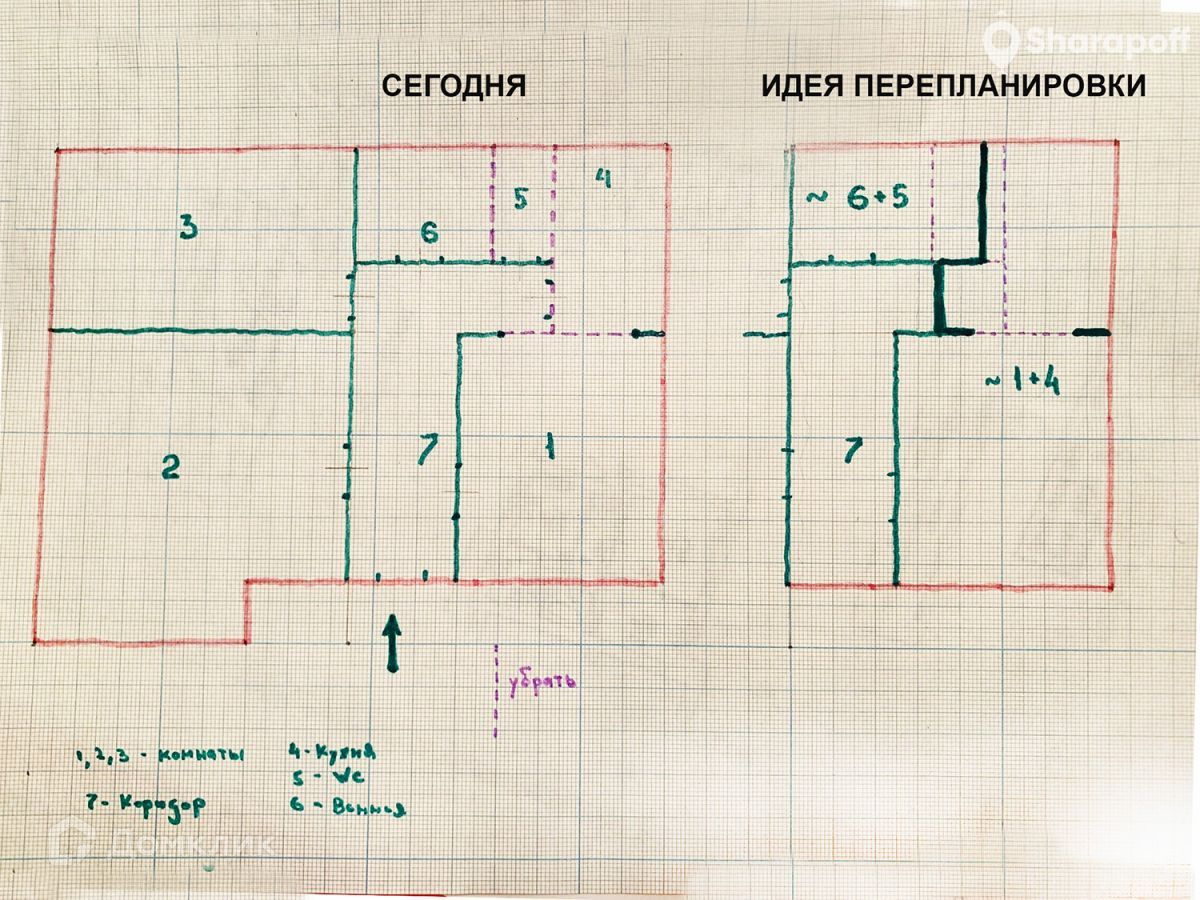 Sharapoff
СЕГОДНЯ
ИДЕЯ ПЕРЕПЛАНИРОВКИ
3
6
5
4
2
7
1
~ 6+5
7
~ 1+4
убрать
1,2,3 - комнаты
7 - Коридор
4 - Кухня
5 - Wc
6 - Ванная
Домклик